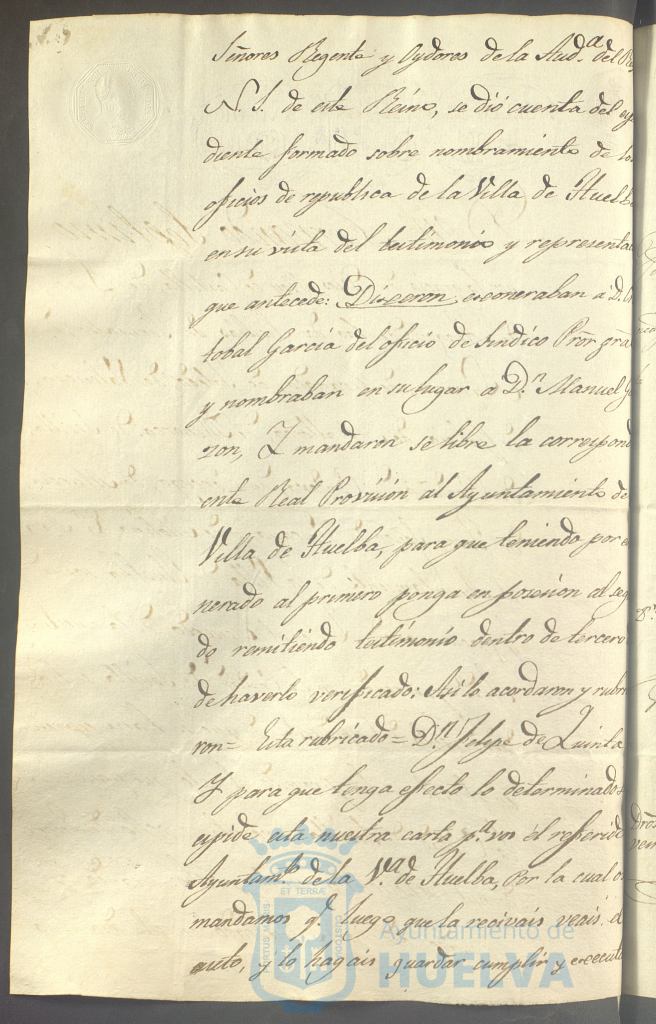 Señores Regente y Oydores de la Aud.ª del Rey
N. S. de este Reino, se dió cuenta del espe
diente formado sobre nombramiento de los
oficios de republica de la Villa de Huelba
en su vista del testimonio y representa
que antecede: Dixeron, exoneraban á D. Cris
tobal Garcia del oficio de Sindico Pror. gral
y nombraban en su lugar a D.n Manuel
zon, Y mandaron se libre la correspondi
ente Real Provision al Ayuntamiento de
Villa de Huelba, para que teniendo por exo
nerado al primero ponga en posesion al segun
do remitiendo testimonio dentro de tercero
de haverlo verificado: Asi lo acordaron y rubrica
ron = Esta rubricado = D.n Felipe de Quinta
Y para que tenga efecto lo determinado se
espide esta nuestra carta p.ª vos el referido
Ayuntam.to de la V.ª de Huelba, Por la cual os
mandamos q.e luego que la recivais veais el
auto, y lo hagais guardar cumplir y executar
ET TERRAE
Ayuntamiento de
HUELVA